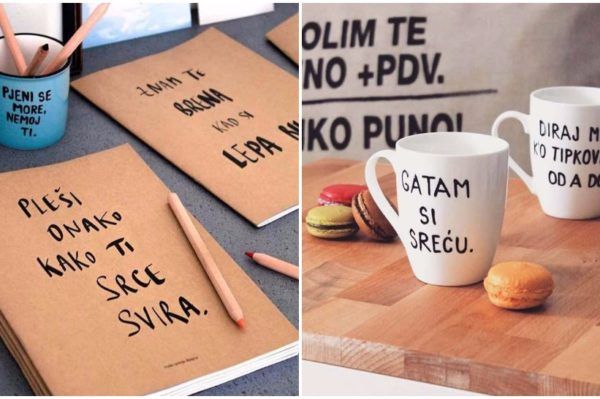 PJENI SE
MORE,
NEMOJ
TI.
ZNAM TE
BRENA
KAO SI
LEPA
PLEŠI
ONAKO
KAKO TI
SRCE
SVIRA.
OLIM TE
NO +PDV.
KO PUNO!
GATAM
SI
SREĆU.
DIRAJ M
K'O TIPKOV
OD A DO